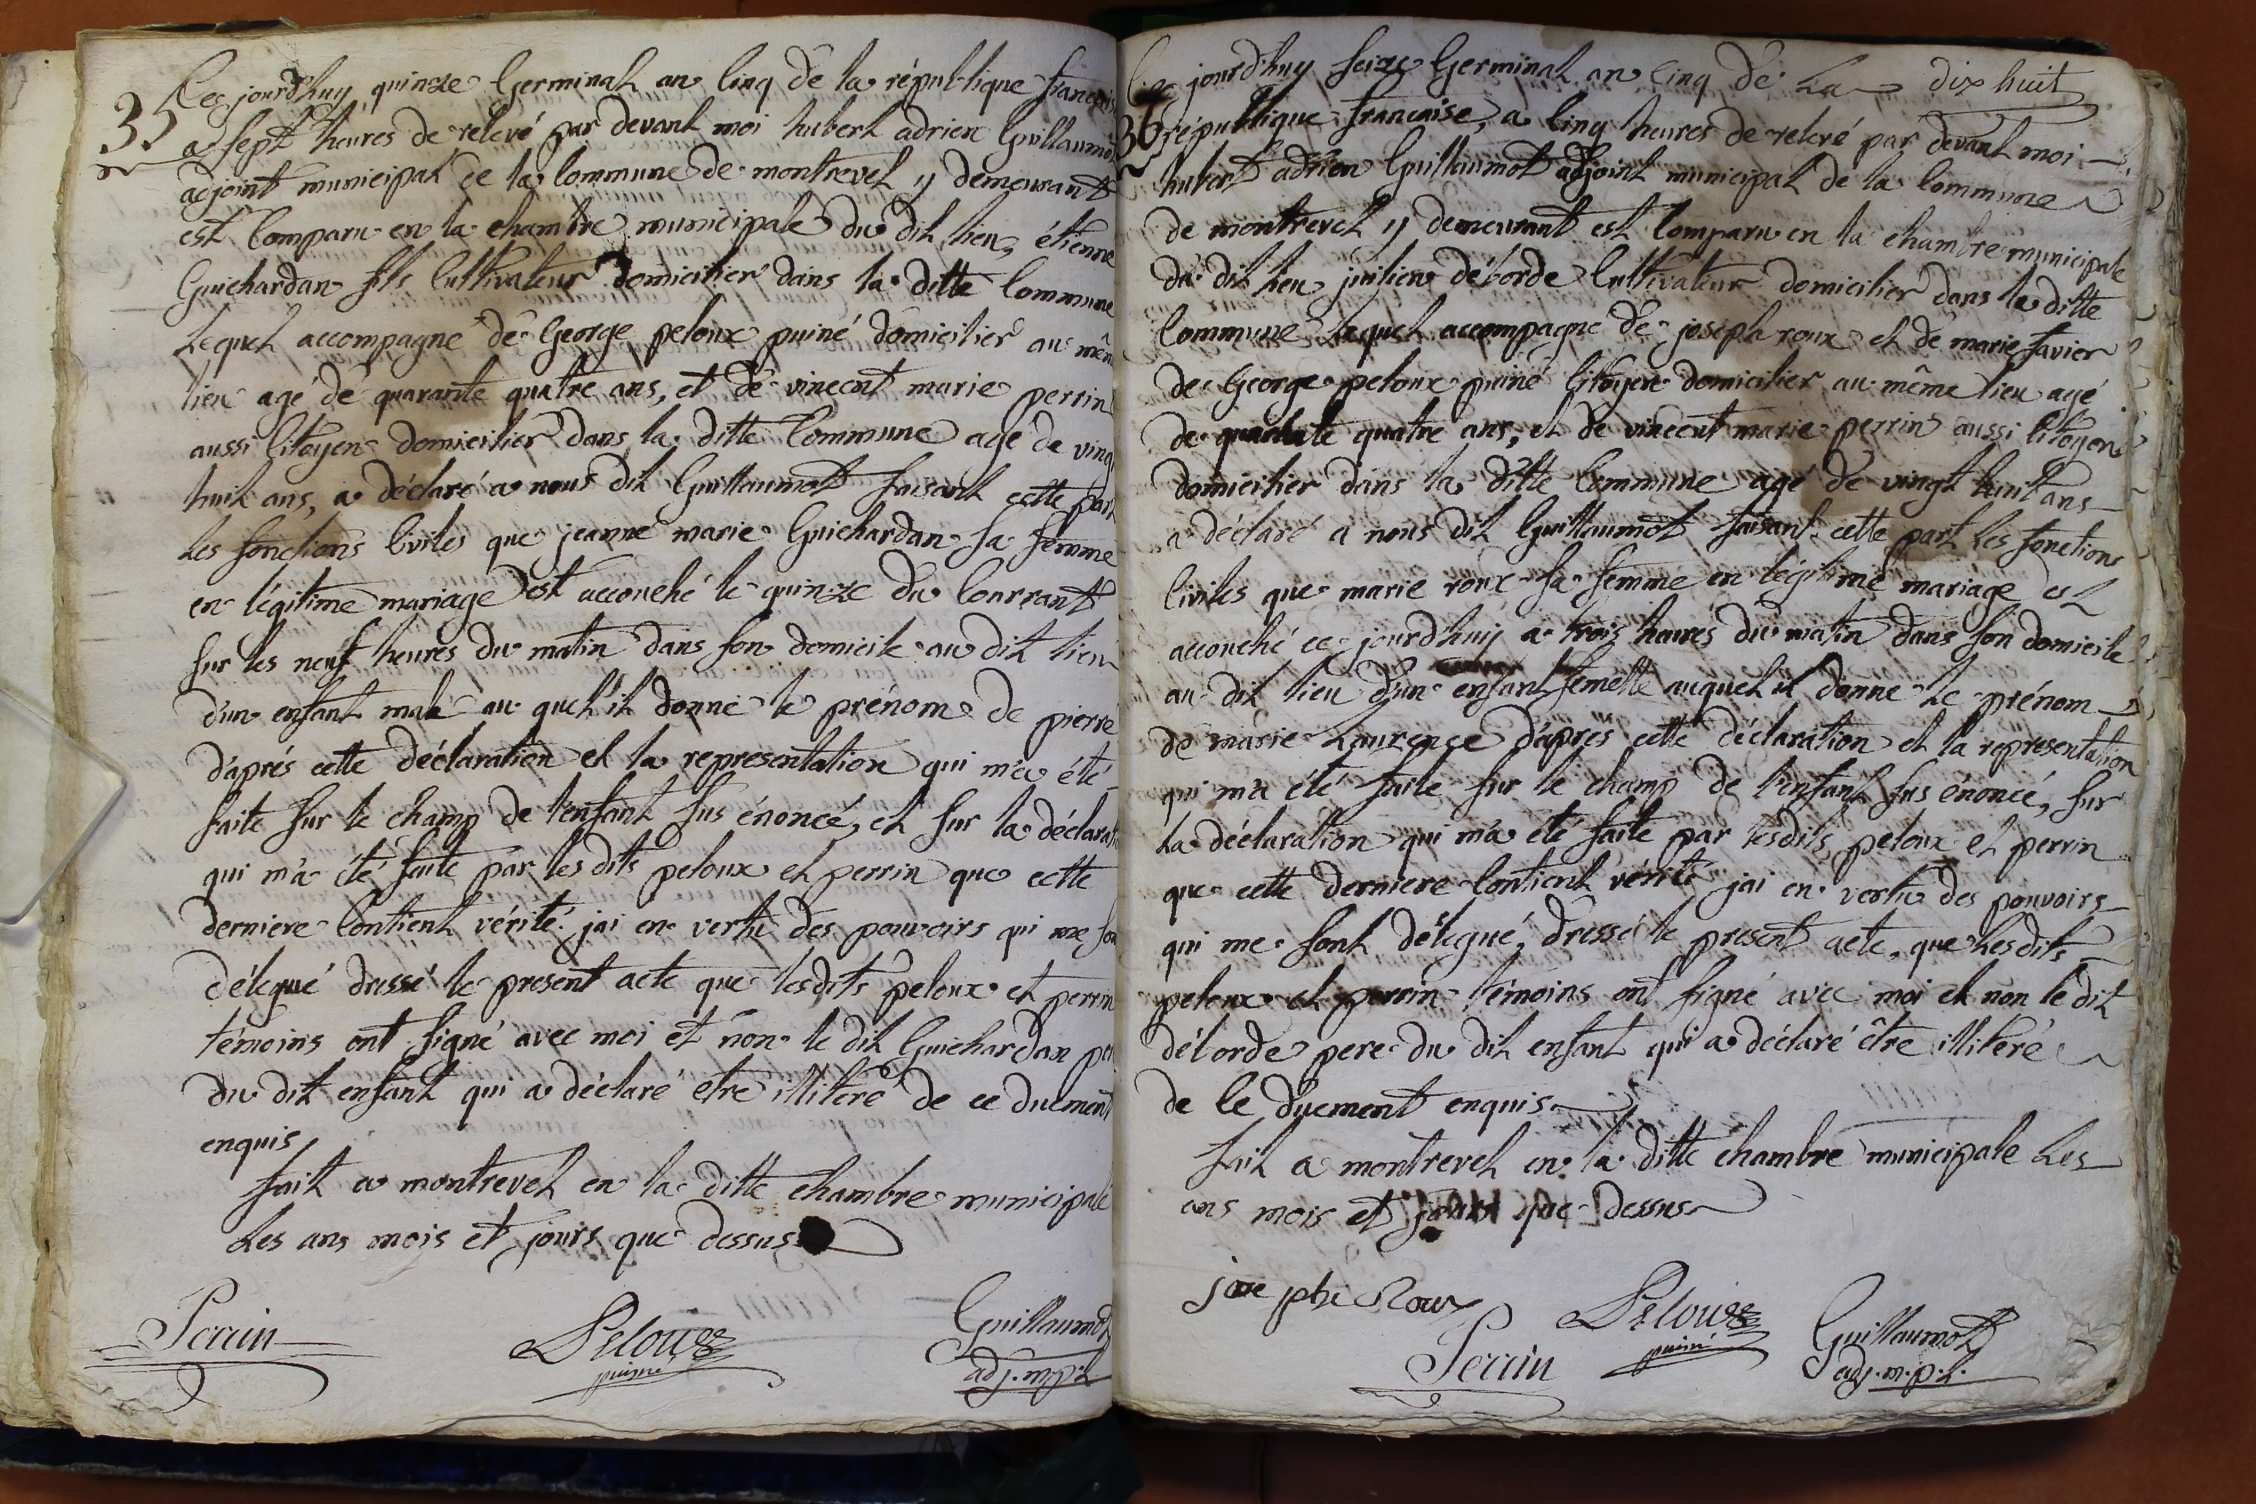 35
Cec jourd'huy quinze Germinal an Cinq de la république francaise
a sept heures de relevé par devant moi hubert adrien Guillaumot
adjoint municipal de la Commune de montrevel y demeurant
est Comparu en la chambre municipale du dit lieu, étienne
Guichardan fils Cultivateur domicilier dans la ditte Commune
Lequel accompagné de George peloux puiné domicilier au même
lieu agé de quarante quatre ans, et de vincent marie perrin
aussi Citoyen domicilier dans la ditte Commune agé de vingt
huit ans, a déclaré a nous dit Guillaumot faisant cette part
Les fonctions Civiles que jeanne marie Guichardan sa femme
en légitime mariage est accouché le quinze du Courrant
sur les neuf heures du matin dans son domicile au dit lieu
d'un enfant male au quel il donne le prénom de pierre
d'aprés cette déclaration et la representation qui m'a été
faite sur le champ de l'enfant sus énoncé, et sur la déclarati
qui m'a été faite par les dits peloux et perrin que cette
derniere Contient vérité. jai en vertu des pouvoirs qui me son
délegué dressé le present acte que lesdits peloux et perrin
témoins ont signé avec moi et non le dit Guichardan per
du dit enfant qui a déclaré etre illiteré de ce duement
enquis,
fait a montrevel en la ditte chambre municipale
Les ans mois et jours que dessus
Perrin
Peloux
puiné
Guillaumot
adj. m.p.l
dix huit
36
Cec jourd'huy seize Germinal an Cinq de La
république francaise, a Cinq heures de relevé par devant moi
hubert adrien Guillaumot adjoint municipal de la Commune
de montrevel y demeurant est Comparu en la chambre municipale
du dit lieu julien déborde Cultivateur domicilier dans la ditte
Commune Lequel accompagné de joseph roux et de marie favier
de George peloux puiné Citoyen domicilier au même lieu agé
de quarante quatre ans, et de vincent marie perrin aussi Citoyen
domicilier dans la ditte Commune agé de vingt huit ans
a déclaré a nous dit Guillaumot faisant cette part les fonctions
Civiles que marie roux sa femme en légitime mariage est
accouché ce jourd'huy a trois heures du matin dans son domicile
au dit lieu d'un enfant femelle auquel il donne Le prénom
de marie Laurence d'apres cette déclaration et la representation
qui m'a été faite sur le champ de l'enfant sus énoncé, sur
La déclaration qui m'a été faite par lesdits peloux et perrin
que cette derniere Contient vérité jai en vertu des pouvoirs
qui me sont délegué, dressé le present acte, que Lesdits
peloux et perrin témoins ont signé avec moi et non le dit
déborde pere du dit enfant qui a déclaré être illiteré
de Ce duement enquis
fait a montrevel en la ditte chambre municipale Les
ans mois et jours que dessus
Roux
Perrin
Peloux
puiné
Guillaumot
adj. m.p.l.